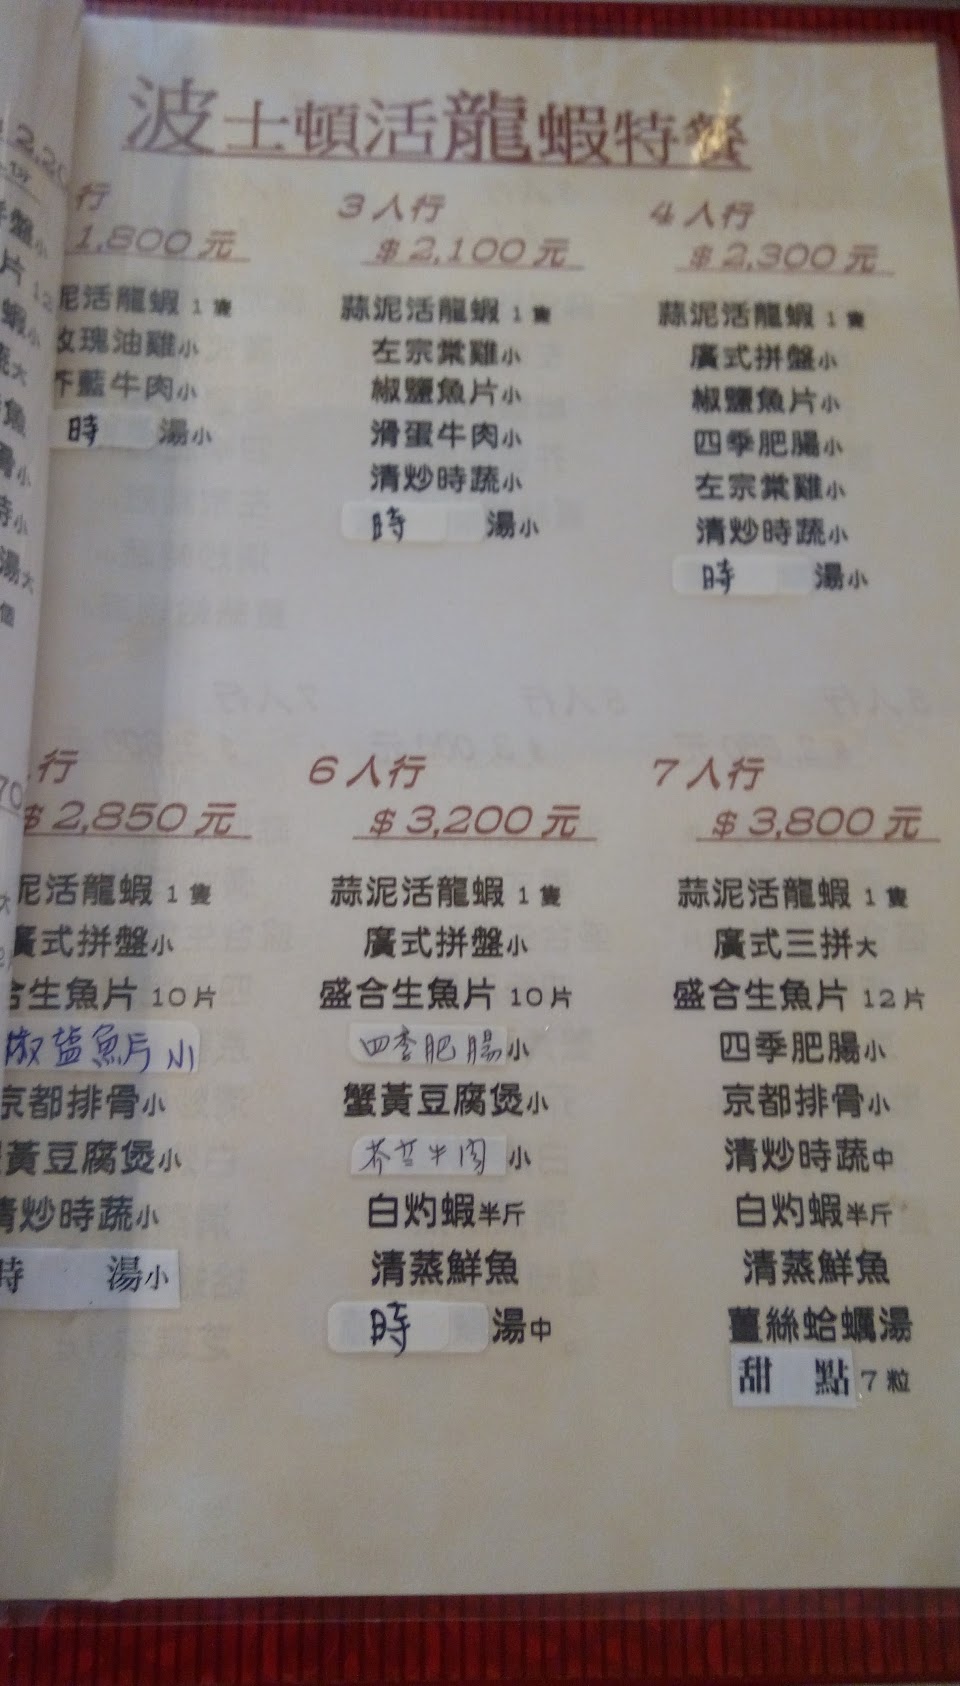 波士頓活龍蝦特餐
行
1,800元
泥活龍蝦 1隻
玫瑰油雞小
芥藍牛肉小
時 湯小
3人行
$2,100元
蒜泥活龍蝦 1隻
左宗棠雞小
椒鹽魚片小
滑蛋牛肉小
清炒時蔬小
時 湯小
4人行
$2,300元
蒜泥活龍蝦 1隻
廣式拼盤小
椒鹽魚片小
四季肥腸小
左宗棠雞小
清炒時蔬小
時 湯小
行
$2,850元
泥活龍蝦 1隻
廣式拼盤小
合生魚片 10片
椒鹽魚片 小
京都排骨小
黃豆腐煲小
清炒時蔬小
時 湯小
6人行
$3,200元
蒜泥活龍蝦 1隻
廣式拼盤小
盛合生魚片 10片
四季肥腸小
蟹黃豆腐煲小
芥兰牛肉 小
白灼蝦半斤
清蒸鮮魚
時 湯中
7人行
$3,800元
蒜泥活龍蝦 1隻
廣式三拼大
盛合生魚片 12片
四季肥腸小
京都排骨小
清炒時蔬中
白灼蝦半斤
清蒸鮮魚
薑絲蛤蠣湯
甜 點 7粒